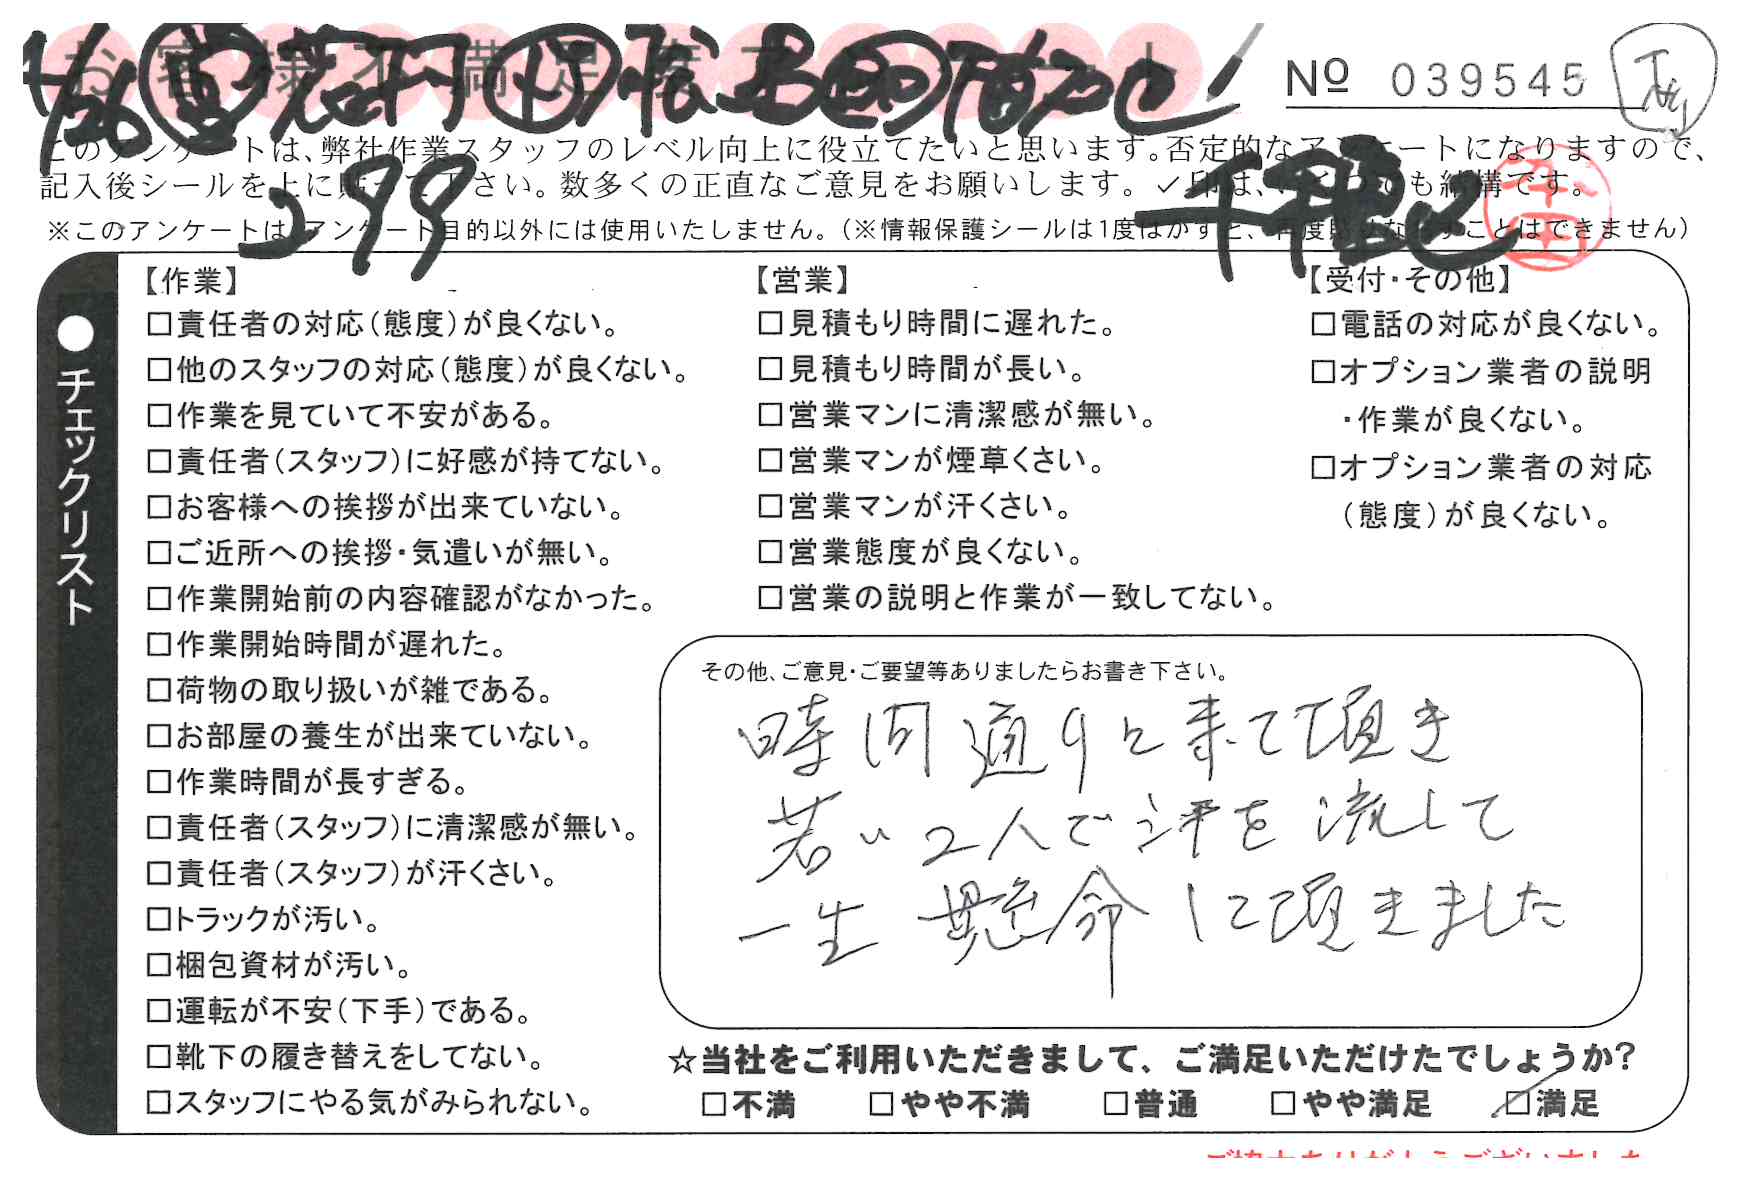 お客様不満足度アンケート
№ 039545
4/26
このアンケートは、弊社作業スタッフのレベル向上に役立てたいと思います。否定的なアンケートになりますので、
記入後シールを上に貼って下さい。数多くの正直なご意見をお願いします。✓印は、いくつでも結構です。
※このアンケートは、アンケート目的以外には使用いたしません。(※情報保護シールは1度はがすと、再度貼りなおすことはできません)
299
●チェックリスト
【作業】
□責任者の対応(態度)が良くない。
□他のスタッフの対応(態度)が良くない。
□作業を見ていて不安がある。
□責任者(スタッフ)に好感が持てない。
□お客様への挨拶が出来ていない。
□ご近所への挨拶・気遣いが無い。
□作業開始前の内容確認がなかった。
□作業開始時間が遅れた。
□荷物の取り扱いが雑である。
□お部屋の養生が出来ていない。
□作業時間が長すぎる。
□責任者(スタッフ)に清潔感が無い。
□責任者(スタッフ)が汗くさい。
□トラックが汚い。
□梱包資材が汚い。
□運転が不安(下手)である。
□靴下の履き替えをしてない。
□スタッフにやる気がみられない。
【営業】
□見積もり時間に遅れた。
□見積もり時間が長い。
□営業マンに清潔感が無い。
□営業マンが煙草くさい。
□営業マンが汗くさい。
□営業態度が良くない。
□営業の説明と作業が一致してない。
【受付・その他】
□電話の対応が良くない。
□オプション業者の説明
・作業が良くない。
□オプション業者の対応
(態度)が良くない。
その他、ご意見・ご要望等ありましたらお書き下さい。
時間通りに来て頂き
若い2人で汗を流して
一生懸命して頂きました
☆当社をご利用いただきまして、ご満足いただけたでしょうか?
□不満 □やや不満 □普通 □やや満足 □満足
ご協力ありがとうございました